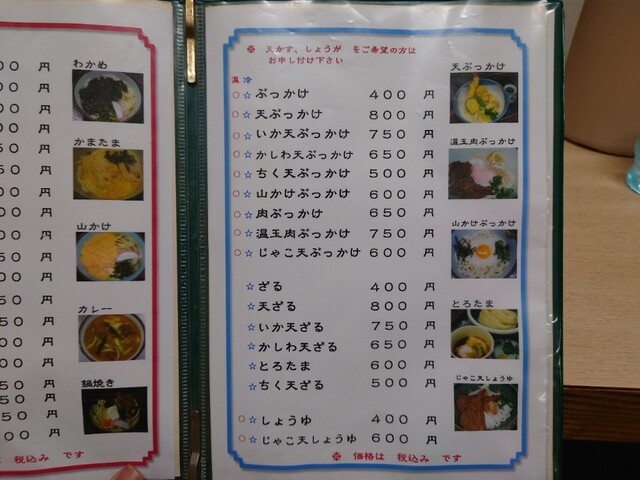 ００ 円
００ 円
００ 円
００ 円
５０ 円
５０ 円
００ 円
００ 円
００ 円
５０ 円
００ 円
５０ 円
５０ 円
００ 円
００ 円
５０ 円
５０ 円
５０ 円
００ 円
わかめ
かまたま
山かけ
カレー
鍋焼き
税込み です
※ 天かす、しょうが をご希望の方は
お申し付け下さい
温 冷
○☆ぶっかけ ４００ 円
○☆天ぶっかけ ８００ 円
○☆いか天ぶっかけ ７５０ 円
○☆かしわ天ぶっかけ ６５０ 円
○☆ちく天ぶっかけ ５００ 円
○☆山かけぶっかけ ６００ 円
○☆肉ぶっかけ ６５０ 円
○☆温玉肉ぶっかけ ７５０ 円
○☆じゃこ天ぶっかけ ６００ 円
☆ざる ４００ 円
☆天ざる ８００ 円
☆いか天ざる ７５０ 円
☆かしわ天ざる ６５０ 円
☆とろたま ６００ 円
☆ちく天ざる ５００ 円
○☆しょうゆ ４００ 円
○☆じゃこ天しょうゆ ６００ 円
※ 価格は 税込み です
天ぶっかけ
温玉肉ぶっかけ
山かけぶっかけ
とろたま
じゃこ天しょうゆ